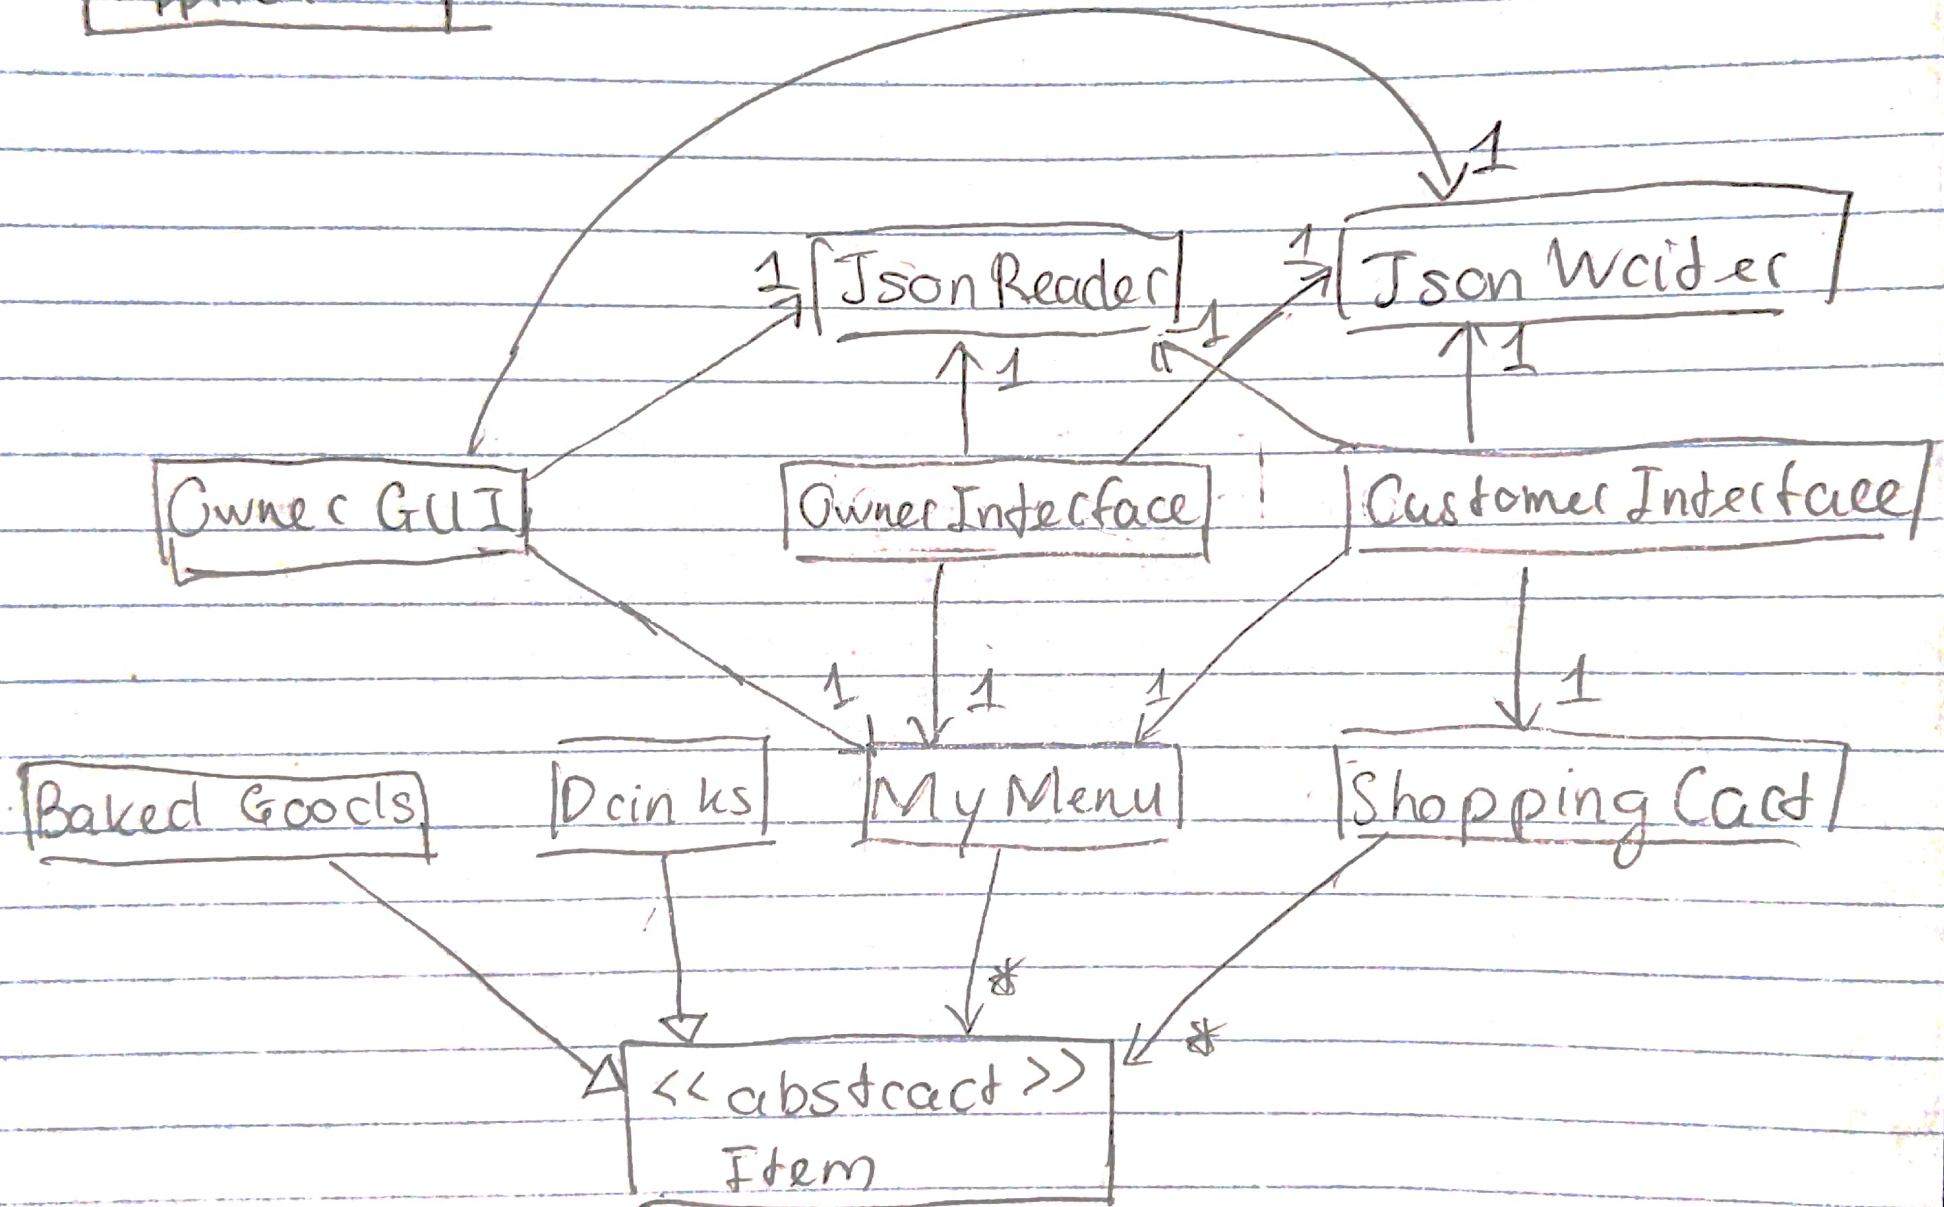 1
1
1
JsonReader
Json Writer
1
1
1
Owner GUI
OwnerInterface
CustomerInterface
1
1
1
1
Baked Goods
Drinks
MyMenu
Shopping Cart
*
*
<<abstract>>
Item